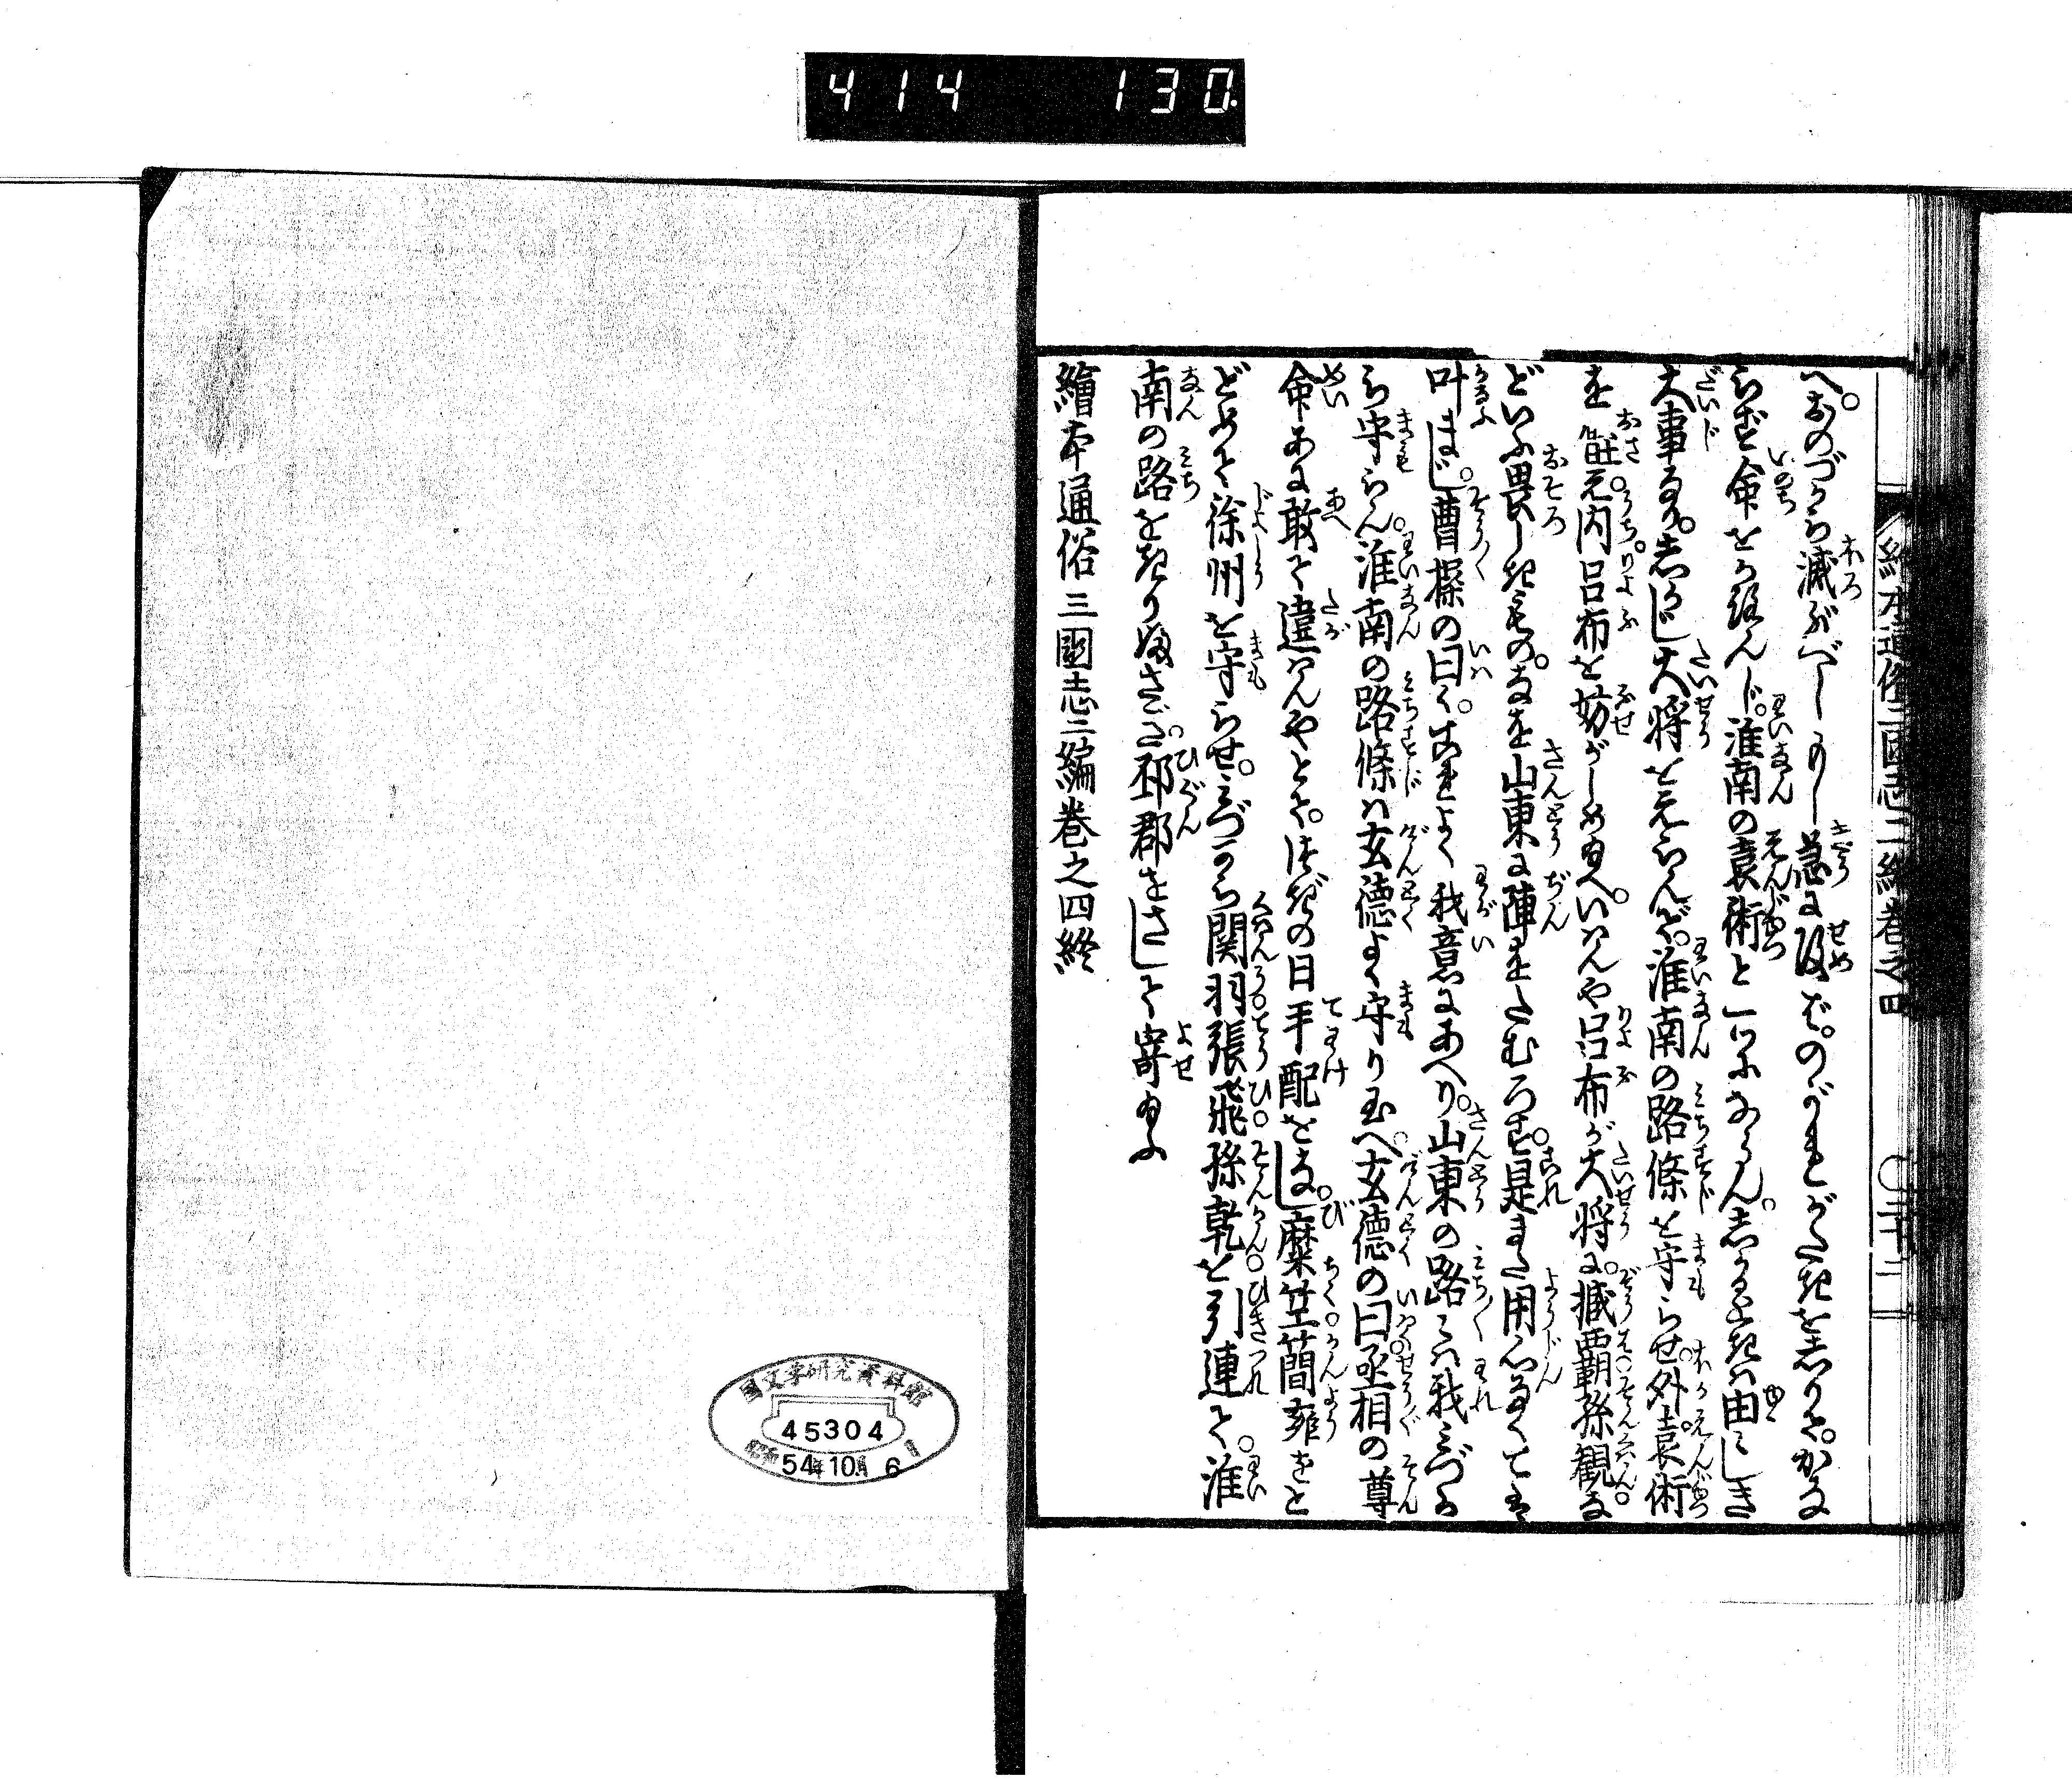 414 130
へ。おのづから滅ぶべし。もし急に攻ば。のがれがたきを志りて。かな
らず命をうけんじ。淮南の袁術と一ツになるべし。志かるときは由〻しき
大事なり。志かじ大将をえらんで。淮南の路條を守らせ。外袁術
を遮え。内呂布を妨がしめ給へ。いはんや呂布が大将に。臧覇孫観な
どいふ畏しきもの。なを山東に陣をたむろす。是また用心なくては
叶まじ。曹操の曰く。これよく我意にあへり。山東の路〻は我みづか
ら守らん。淮南の路條は玄徳よく守り玉へ。玄徳の曰丞相の尊
命あに敢て違はんやとて。次の日手配をなし。糜竺簡雍をと
どめて徐州を守らせ。みづから関羽張飛孫乾を引連て。淮
南の路をきりふさぎ。邳郡をさして寄給ふ
繪本通俗三國志二編巻之四終
繪本通俗三国志二編巻之四 〇二十二
国文学研究資料館
45304
昭和54年10月6日